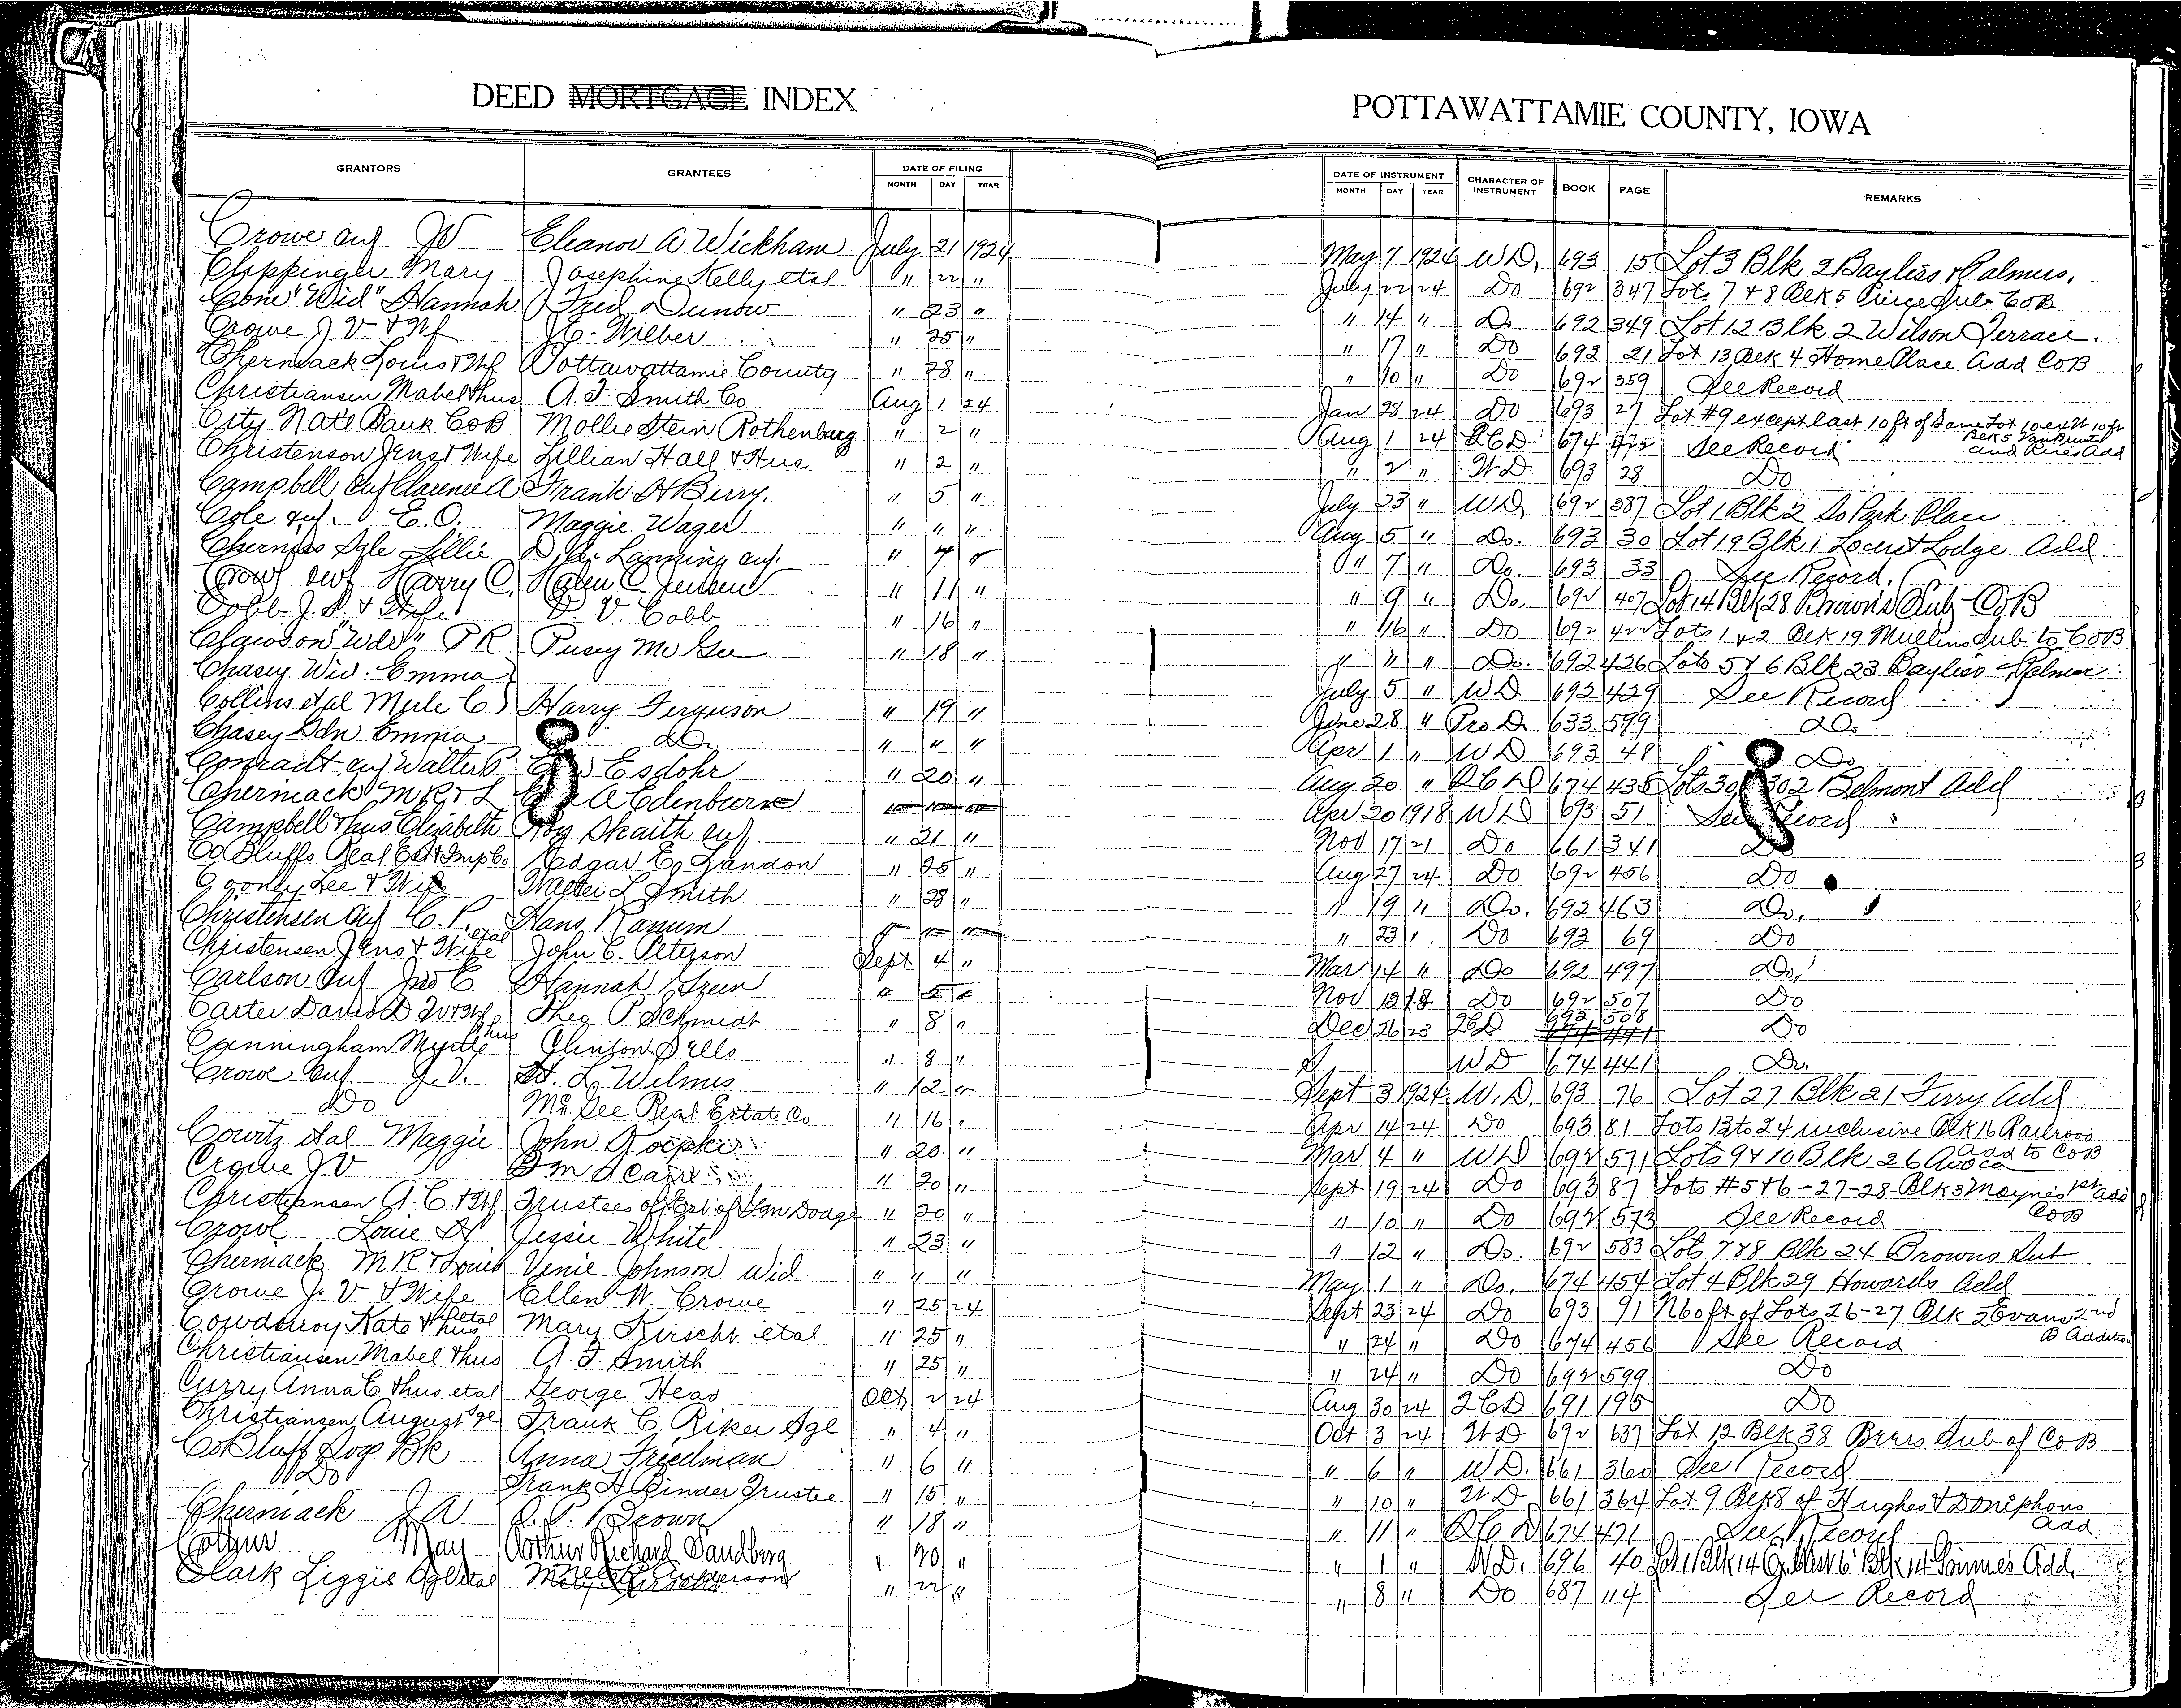 DEED MORTGAGE INDEX
POTTAWATTAMIE COUNTY, IOWA
GRANTORS GRANTEES DATE OF FILING MONTH DAY YEAR
DATE OF INSTRUMENT MONTH DAY YEAR CHARACTER OF INSTRUMENT BOOK PAGE REMARKS
Crowe JW Eleanor A Wickham July 21 1924 May 7 1924 W D, 693 15 Lot 3 Blk 2 Bayliss & Palmers.
Clippinger Mary Josephine Kelly etal " 22 " July 22 24 Do 692 347 Lots 7 & 8 Blk 5 Pierce Sub CoB
Cone "Wid" Hannah Fred Dunow " 23 " " 14 " Do. 692 349 Lot 12 Blk 2 Wilson Terrace.
Crowe J. V & Wf J.C. Wilber " 25 " " 17 " Do 693 21 Lot 13 Blk 4 Home Place Add CoB
Cherniack Louis & Wf Pottawattamie County " 28 " " 10 " Do 692 359 See Record
Christiansen Mabel & hus A. F. Smith Co Aug 1 24 Jan 28 24 Do 693 27 Lot #9 except last 10 ft of Same Lot 10 ex 10 ft
Blk 5 and Rices Add
City Nat'l Bank CoB Mollie Stein Rothenburg " 2 " Aug 1 24 QCD 674 See Record
Christenson Jens & Wife Lillian Hall & Hus " 2 " " 2 " WD 693 28 Do
Campbell Clarence A Frank H Berry. " 5 " July 23 " W D, 692 387 Lot 1 Blk 2 So Park Place
Cole E. O. Maggie Wager " " " Aug 5 " Do. 693 30 Lot 19 Blk 1 Locust Lodge Add
Cherniss Sgle Lillie Lanning " 7 " " 7 " Do. 693 33 See Record.
Crowl Harry C. Helen C Jensen " 11 " " 9 " Do. 692 407 Lot 14 Blk 28 Brown's Sub CoB
Cobb J. S. & Wife D. V. Cobb " 16 " " 16 " Do 692 422 Lots 1 & 2 Blk 19 Mullins Sub to CoB
Clawson "Wdr" P R Pusey McGee " 18 " " " " Do. 692 426 Lots 5 & 6 Blk 23 Bayliss & Palmer
Chasey Wid. Emma July 5 " W D 692 429 See Record
Collins etal Merle C Harry Ferguson " 19 " June 28 " Pro D. 633 599 Do
Chasey Gdn Emma Do " " " Apr 1 " W D 693 48 Do
Walter P. Esdohr " 20 " Aug 20 " Q C D 674 435 Lots 302 Belmont Add
Cherniack M R & L A Edenburn Apr 20 1918 W D 693 51 See Record
Campbell & hus Elizabeth Roy Skaith " 21 " Nov 17 21 Do 661 341 Do
Co Bluffs Real Est & Imp Co Edgar E Landon " 25 " Aug 27 24 Do 692 456 Do
Lee & Wife Walter L Smith " 28 " " 19 " Do. 692 463 Do.
Christensen C. P. Hans Ranum " 23 " Do 693 69 Do
Christensen Jens & Wife etal John C. Peterson Sept 4 " Mar 14 " Do 692 497 Do.
Carlson Jno E Hannah Green " 5 " Nov 18 Do 692 507 Do
Carter David D & Wf Theo P Schmidt " 8 " Dec 26 23 QCD 692 508 Do
Cunningham Myrtle & hus Clinton Sells " 8 " W D 674 441 Do.
Crowe J. V. L. Wilmes " 12 " Sept 3 1924 W. D. 693 76 Lot 27 Blk 21 Ferry Add
Do McGee Real Estate Co " 16 " Apr 14 24 Do 693 81 Lots 13 to 24 inclusive Blk 16 Railroad
Add to CoB
Cowitz etal Maggie John " 20 " Mar 4 " W D 692 571 Lots 9 & 10 Blk 26 Avoca
Crowe J. V " 20 " Sept 19 24 Do 693 87 Lots #5 & 6 - 27-28- Blk 3 Maynes 1st add
CoB
Christiansen A. C. & Wf Trustees of Est of Dodge " 20 " " 10 " Do 692 573 See Record
Crowl Louie Jessie White " 23 " " 12 " Do. 692 583 Lots 7 & 8 Blk 24 Browns Sub
Cherniack M R & Louis Venie Johnson Wid " " " May 1 " Do. 674 454 Lot 4 Blk 29 Howards Add
Crowe J. V & Wife Ellen W. Crowe " 25 24 Sept 23 24 Do 693 91 N60 ft of Lots 26-27 Blk 2 Evans 2nd
B Addition
Kate & hus etal Mary Kirscht etal " 25 " " 24 " Do 674 456 See Record
Christiansen Mabel & hus A. F. Smith " 25 " " 24 " Do 692 599 Do
Curry Anna C & hus etal George Head Oct 2 24 Aug 30 24 QCD 691 195 Do
Christiansen August Sgle Frank C. Riker Sgl " 4 " Oct 3 24 WD 692 637 Lot 12 Blk 38 Beers Sub of CoB
Co Bluff Svgs Bk Anna Friedman " 6 " " 6 " W D. 661 360 See Record
Do Frank H Binder Trustee " 15 " " 10 " WD 661 364 Lot 9 Blk 8 of Hughes & Doniphans
Add
Cherniack J A Brown " 18 " " 11 " Q C D 674 471 See Record
May Arthur Richard Sandberg " 20 " " 1 " W D. 696 40 Lot 1 Blk 14 6' Blk 14 Add.
Clark Lizzie etal Anderson " 22 " " 8 " Do 687 114 See Record